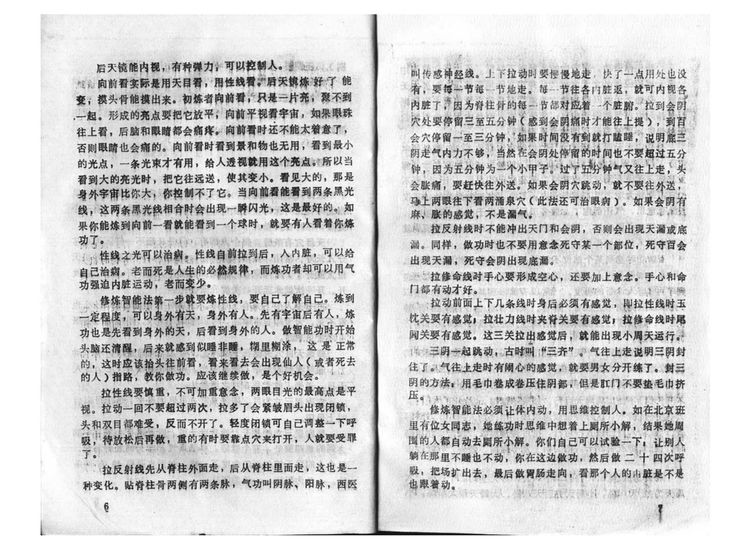 后天镜能内视，有种弹力，可以控制人。
向前看实际是用天目看，用性线看。后天镜炼好了能
变，摸头骨能摸出来。初炼者向前看，只是一片亮，聚不到
一起。形成的亮点要把它放平，向前平视看宇宙，如果眼珠
往上看，后脑和眼睛都会痛疼。向前看时还不能太着意了，
否则眼睛也会痛的。向前看时看到景和物也无用，看到最小
的光点，一条光束才有用，给人透视就用这个亮点。所以当
看到大的亮光时，把它往远送，使其变小。看见大的，那是
身外宇宙比你大，你控制不了它。当向前看能看到两条黑光
线，这两条黑光线相合时会出现一瞬闪光，这是最好的。如
果你能炼到向前一看就能看到一个球时，就要有人看着你炼
功了。
性线之光可以治病。性线自前拉到后，入内脏，可以给
自己治病。老而死是人生的必然规律，而炼功者却可以用气
功强迫内脏运动，老而变少。
修炼智能法第一步就要炼性线，要自己了解自己。炼到
一定程度，可以身外有天，身外有人。先有宇宙后有人，炼
功也是先看到身外的天，后看到身外的人。做智能功时开始
头脑还清醒，后来就感到似睡非睡，糊里糊涂，这是正常
的，这时应该抬头往前看，看来看去会出现仙人（或者死去
的人）指路，教你做功。应该继续做，是个好机会。
拉性线要慎重，不可加重意念，两眼目光的最高点是平
视。拉动一回不要超过两次，拉多了会紧皱眉头出现闭锁，
头和双目都难受，反而不开了。轻度闭锁可自己调整一下呼
吸，待放松后再做，重的有时要靠点穴来打开，人就要受罪
了。
拉反射线先从脊柱外面走，后从脊柱里面走，这也是一
种变化。贴脊柱骨两侧有两条脉，气功叫阴脉、阳脉，西医
6
叫传感神经线。上下拉动时要慢慢地走，快了一点用处也没
有，要每一节每一节地走。每一节都各内脏返，就可内视各
内脏了，因为脊柱骨的每一节都对应着一个脏腑。拉到会阴
穴处要停留三至五分钟（感到会阴痛时才能往上提），到百
会穴停留一至三分钟，如果时间没有到就打瞌睡，说明底三
阴走气内力不够，当然在会阴处停留的时间也不要超过五分
钟，因为五分钟为一个小甲子。过了五分钟气又往上走，头
会胀痛，要赶快往外送。如果会阴穴跳动，就不要往外送，
马上两眼往下看两涌泉穴（此法还可治眼病）。如果会阴有
麻、胀的感觉，不是漏气。
拉反射线时不能冲出天门和会阴，否则会出现天漏或底
漏。同样，做功时也不要用意念死守某一个部位，死守百会
出现天漏，死守会阴出现底漏。
拉修命线时手心要形成空心，还要加上意念。手心和命
门都有动才好。
拉动前面上下几条线时身后必须有感觉，即拉性线时玉
枕关要有感觉；拉壮力线时夹脊关要有感觉；拉修命线时尾
闾关要有感觉。这三关拉出感觉后，就能出现小周天运行。
三阴一起跳动，古时叫“三齐”。气往上走说明三阴封
住了。气往上走时有闹心的感觉，就要男女分开炼了。封三
阴的方法，用毛巾卷成卷压住阴部，但是肛门不要垫毛巾挤
压。
修炼智能法必须让体内动，用思维控制人。如在北京班
里有位女同志，她炼功时思维中想着上厕所小解，结果她周
围的人都自动去厕所小解。你们自己可以试验一下，让别人
躺在那里不睡也不动，你在这边做功，然后做二十四次呼
吸，把场扩出去，最后做胃肠走向，看那个人的内脏是不是
也跟着动。
7